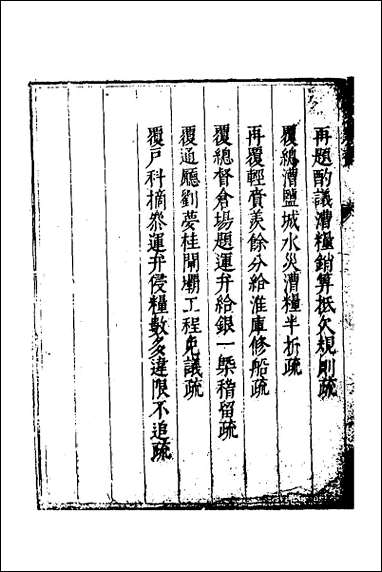 再題酌議漕糧銷算抵欠規則疏
覆總漕鹽城水災漕糧半折疏
再覆輕賫羡餘分給淮庫修船疏
覆總督倉場題運弁給銀一槩稽留疏
覆通廳劉夢桂閘壩工程免議疏
覆戸科摘叅運弁侵糧數多違限不追疏